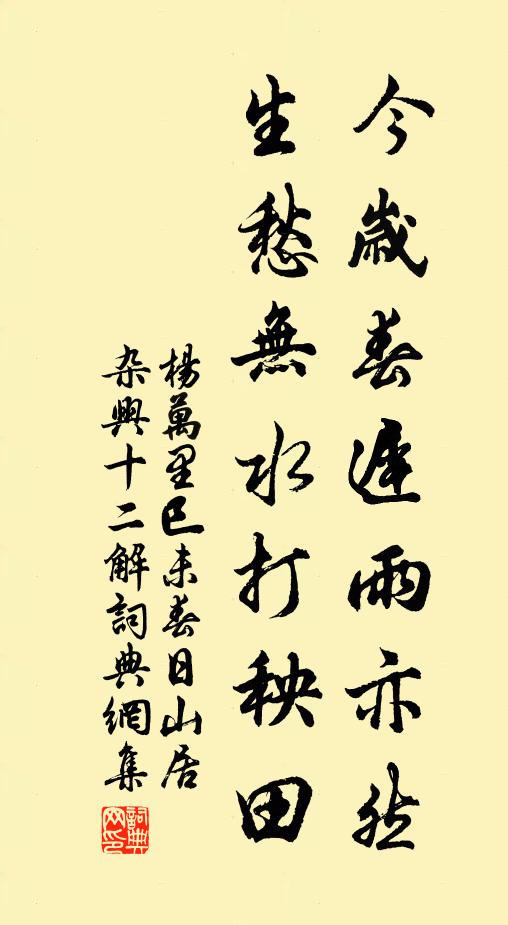 今歲春遲雨亦然
生愁無水打秧田
楊萬里己未春日山居
杂興十二解詞典網集
詞典
网印